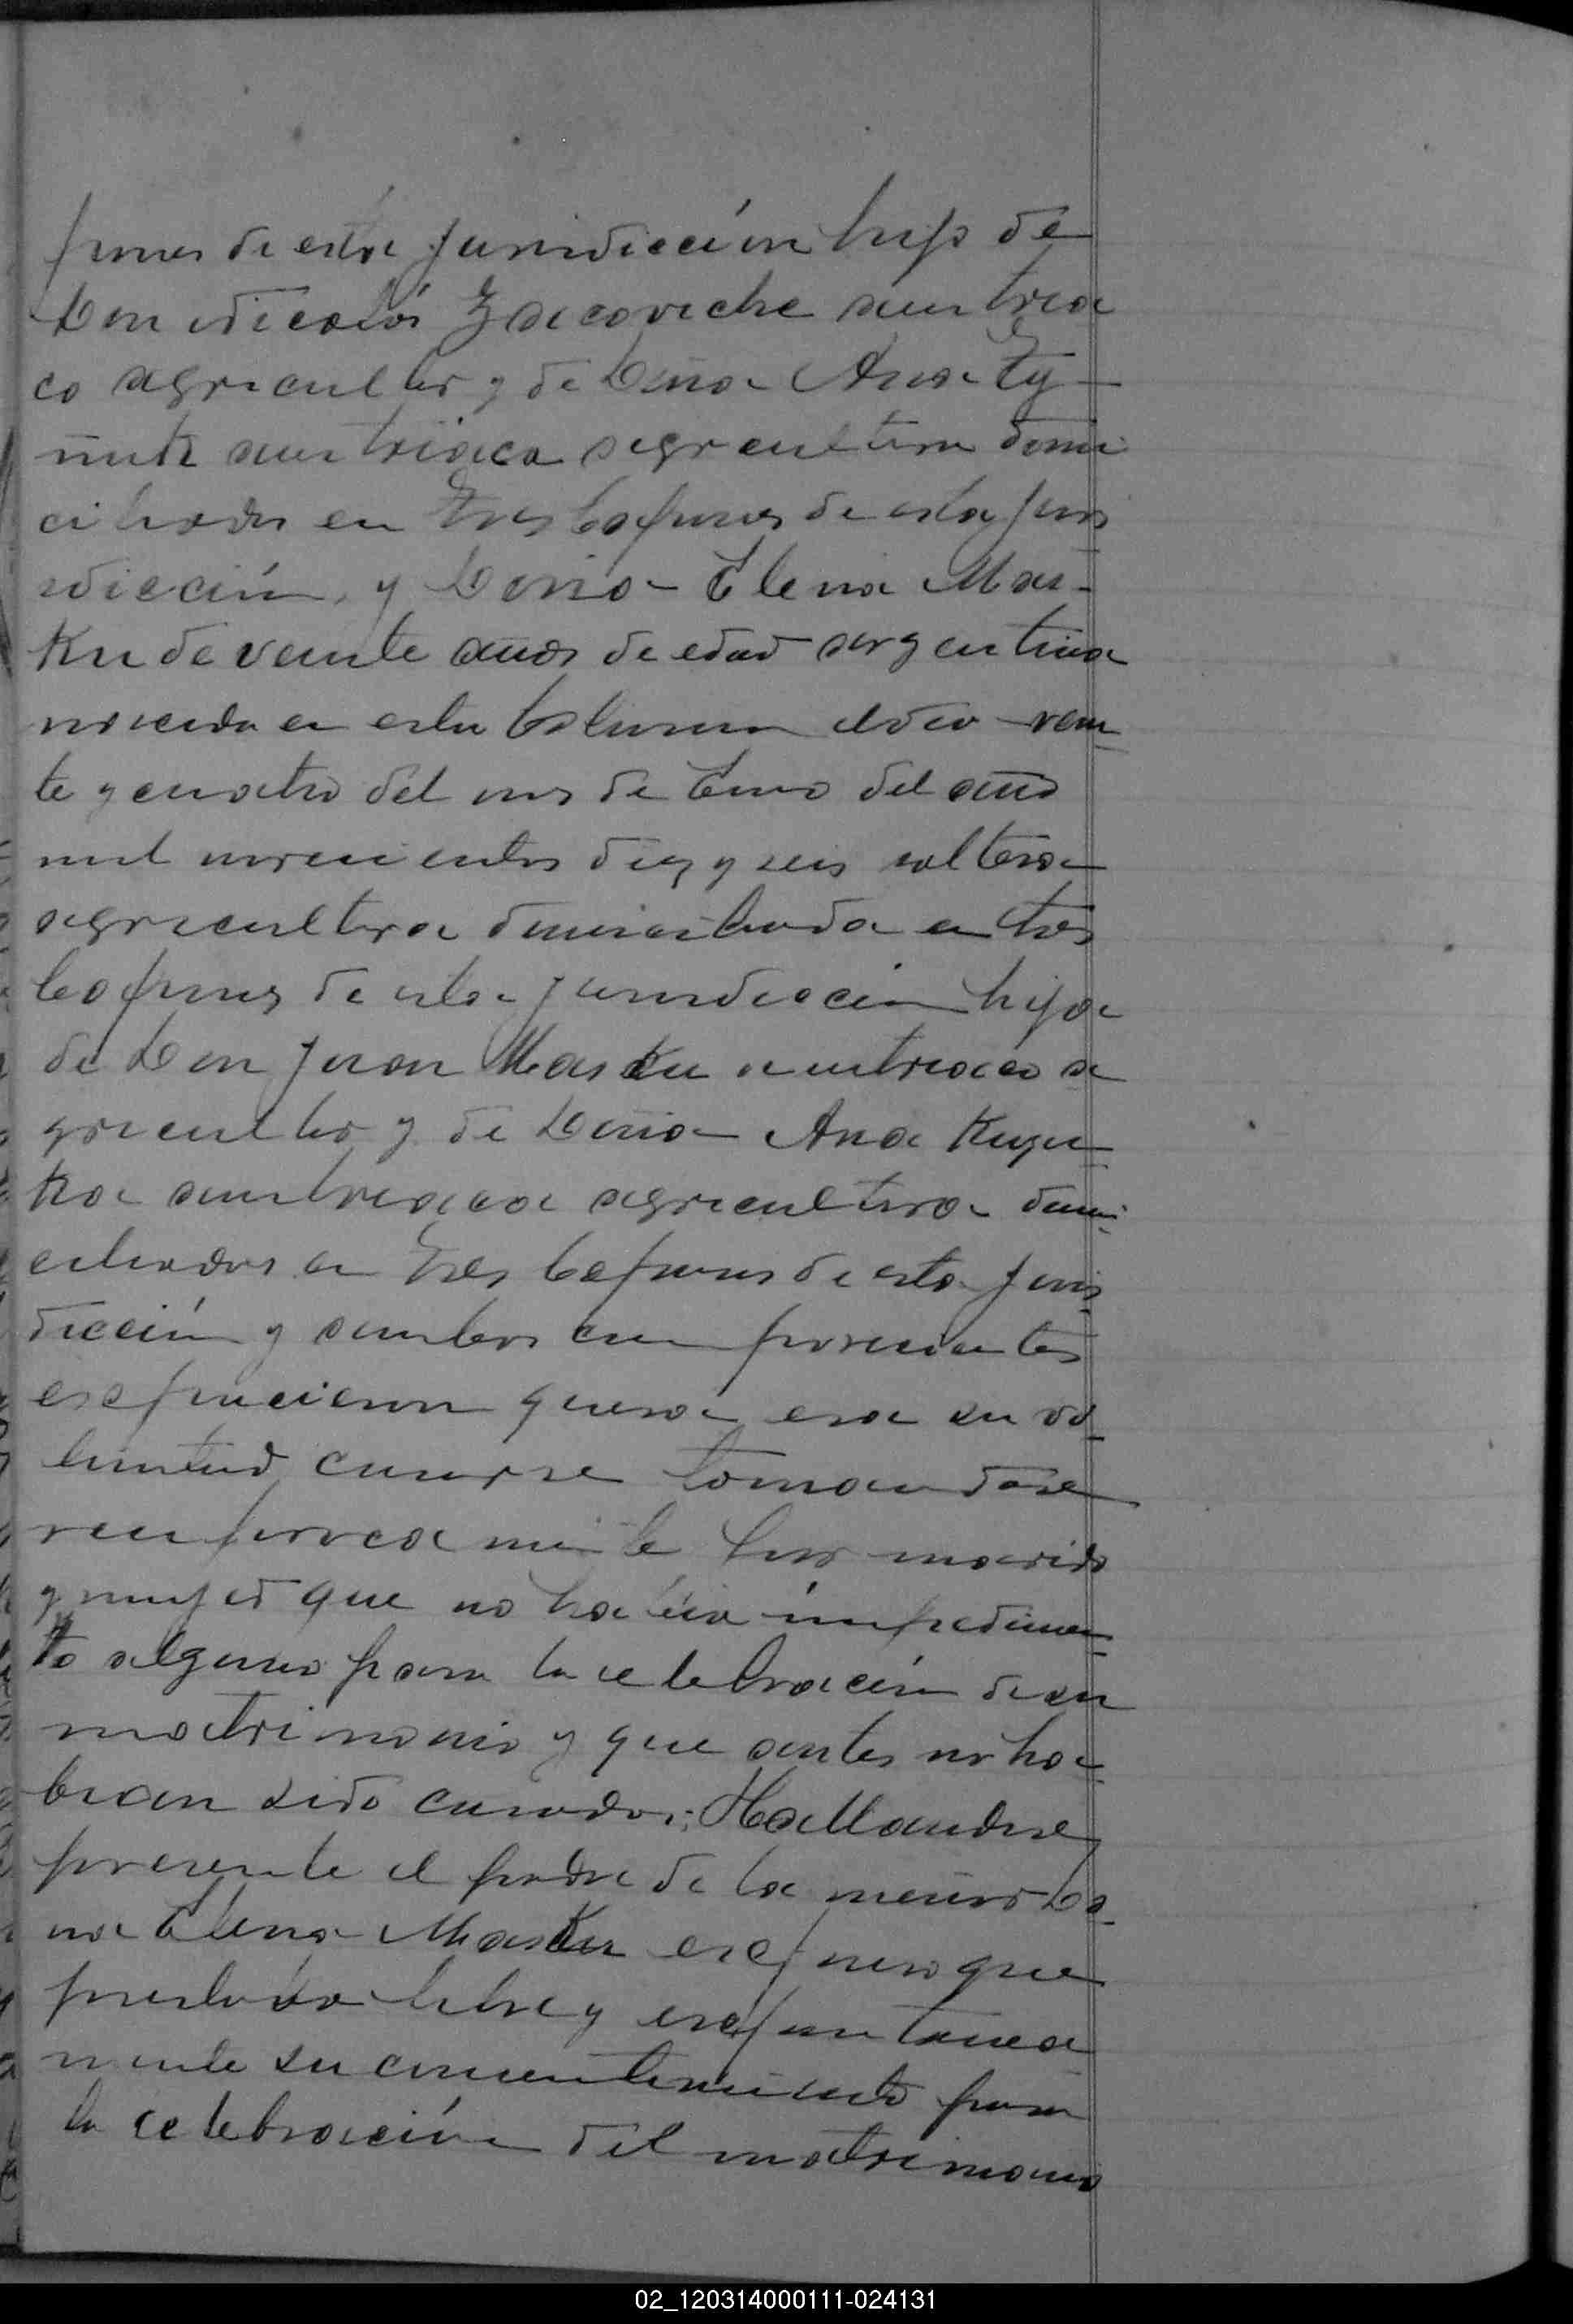 pones de esta jurisdicción hijo de
Don Nicolás Zacoviche austria
co agricultor y de Doña Ana Ty
austriaca agricultora domi
ciliados en Tres Capones de esta juris
dicción, y Doña Elena Mas-
Ku de veinte años de edad argentina
nacida en esta Colonia el dia vein
te y cuatro del mes de Enero del año
mil novecientos diez y seis soltera
agricultora domiciliada en Tres
Capones de esta jurisdicción hija
de Don Juan MasKu austriaco a
gricultor y de Doña Ana
austriaca agricultora domi
ciliados en Tres Capones de esta juris
dicción y ambos comparecientes
expusieron que era su vo
luntad casarse tomandose
reciprocamente por marido
y mujer que no había impedimen
to alguno para la celebración de su
matrimonio y que antes no ha
bian sido casados; Hallandose
presente el padre de la menor Do
ña Elena MasKu expuso que
prestaba libre y espontanea
mente su consentimiento para
la celebración del matrimonio
02_120314000111-024131